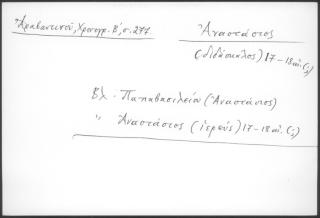 Ἀραβαντινοῦ, Χρονογρ. Β', σ. 277
Ἀναστάσιος
(διδάσκαλος) 17-18 αἰ. (;)
Βλ. Παπαβασιλείου (Ἀναστάσιος)
" Ἀναστάσιος (ἱερεύς) 17-18 αἰ. (;)